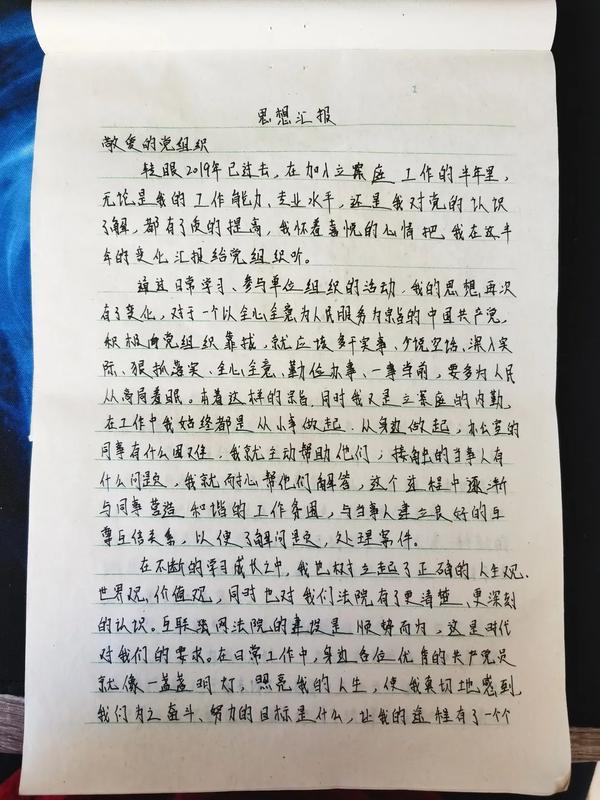 思想汇报
敬爱的党组织
转眼2019年已过去,在加入立案庭工作的半年里,
无论是我的工作能力、专业水平,还是我对党的认识
了解,都有了质的提高,我怀着喜悦的心情把我在这半
年的变化汇报给党组织听。
通过日常学习、参与单位组织的活动,我的思想再次
有了变化,对于一个以全心全意为人民服务为宗旨的中国共产党,
积极向党组织靠拢,就应该多干实事、少说空话、深入实
际、狠抓落实、全心全意、勤俭办事、一事当前,要多为人民
从高局着眼。本着这样的宗旨,同时我又是立案庭的内勤,
在工作中我始终都是从小事做起,从身边做起,办公室的
同事有什么困难,我就主动帮助他们;接触的当事人有
什么问题,我就耐心帮他们解答,这个过程中逐渐
与同事营造和谐的工作氛围,与当事人建立良好的互
尊互信关系,以便了解问题,处理案件。
在不断的学习成长之中,我也树立起了正确的人生观、
世界观、价值观,同时也对我们法院有了更清楚、更深刻
的认识。互联网法院的建设是顺势而为,这是时代
对我们的要求。在日常工作中,身边各位优秀的共产党员
就像一盏盏明灯,照亮我的人生,使我真切地感到
我们为之奋斗、努力的目标是什么,让我的途程有了一个个